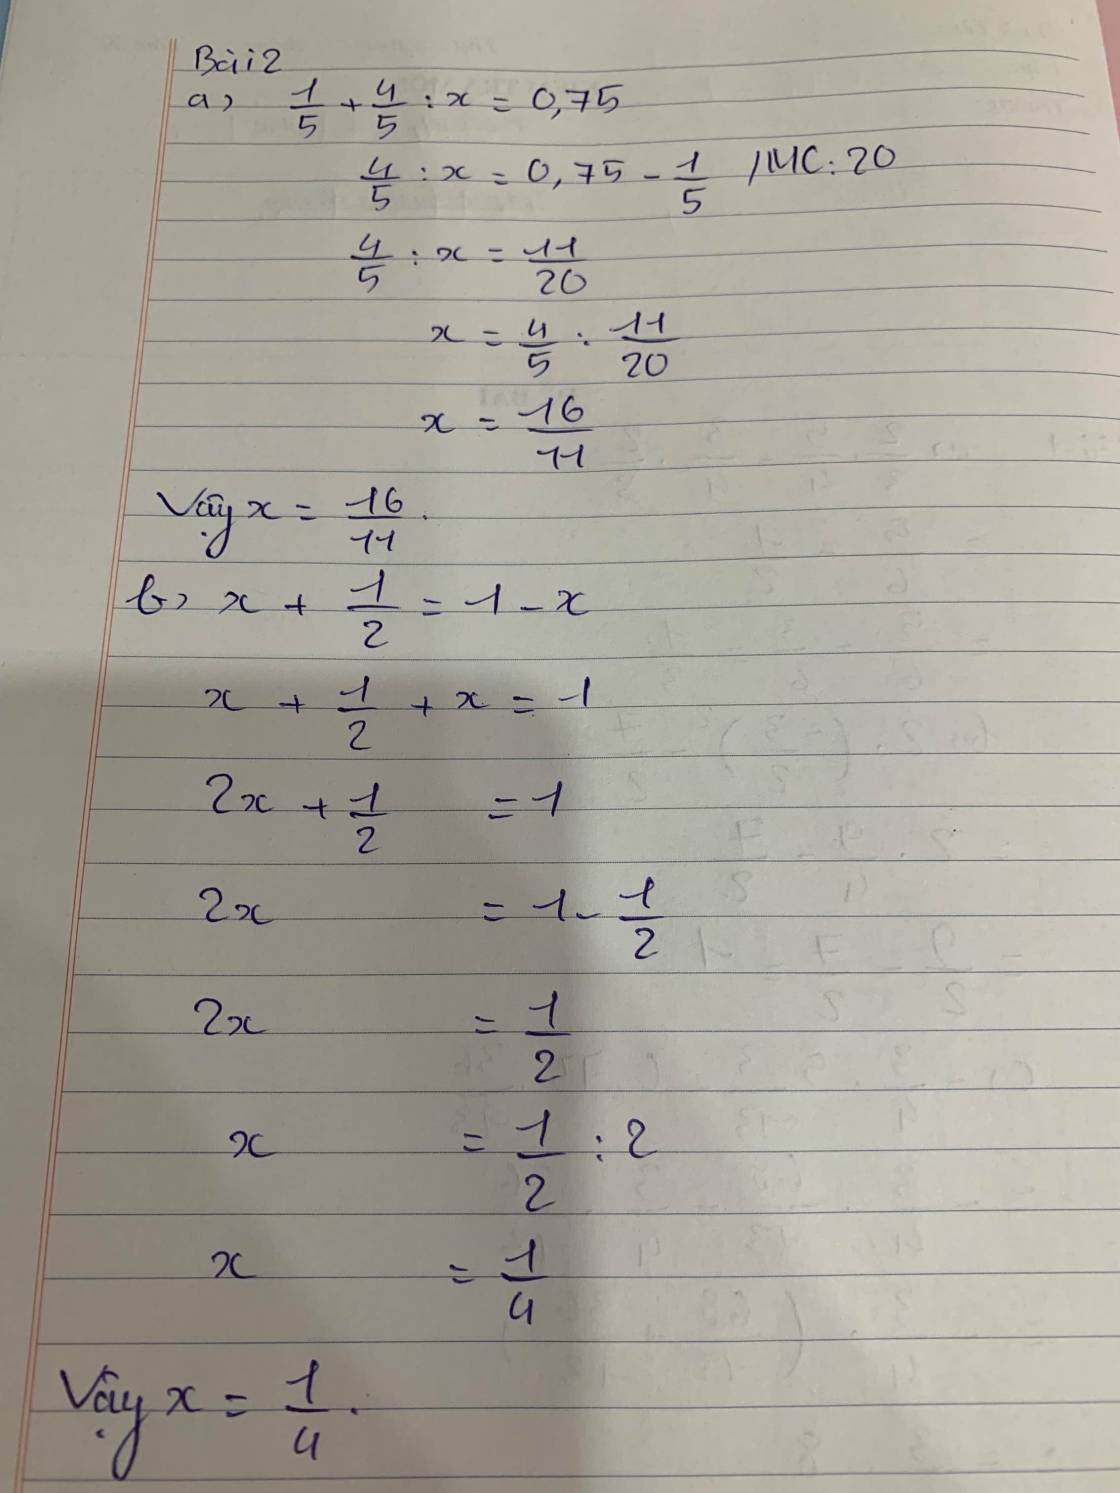 Bài 2
a) 1/5 + 4/5 : x = 0,75
4/5 : x = 0,75 - 1/5 /MC: 20
4/5 : x = 11/20
x = 4/5 : 11/20
x = 16/11
Vậy x = 16/11.
b) x + 1/2 = 1 - x
x + 1/2 + x = 1
2x + 1/2 = 1
2x = 1 - 1/2
2x = 1/2
x = 1/2 : 2
x = 1/4
Vậy x = 1/4.